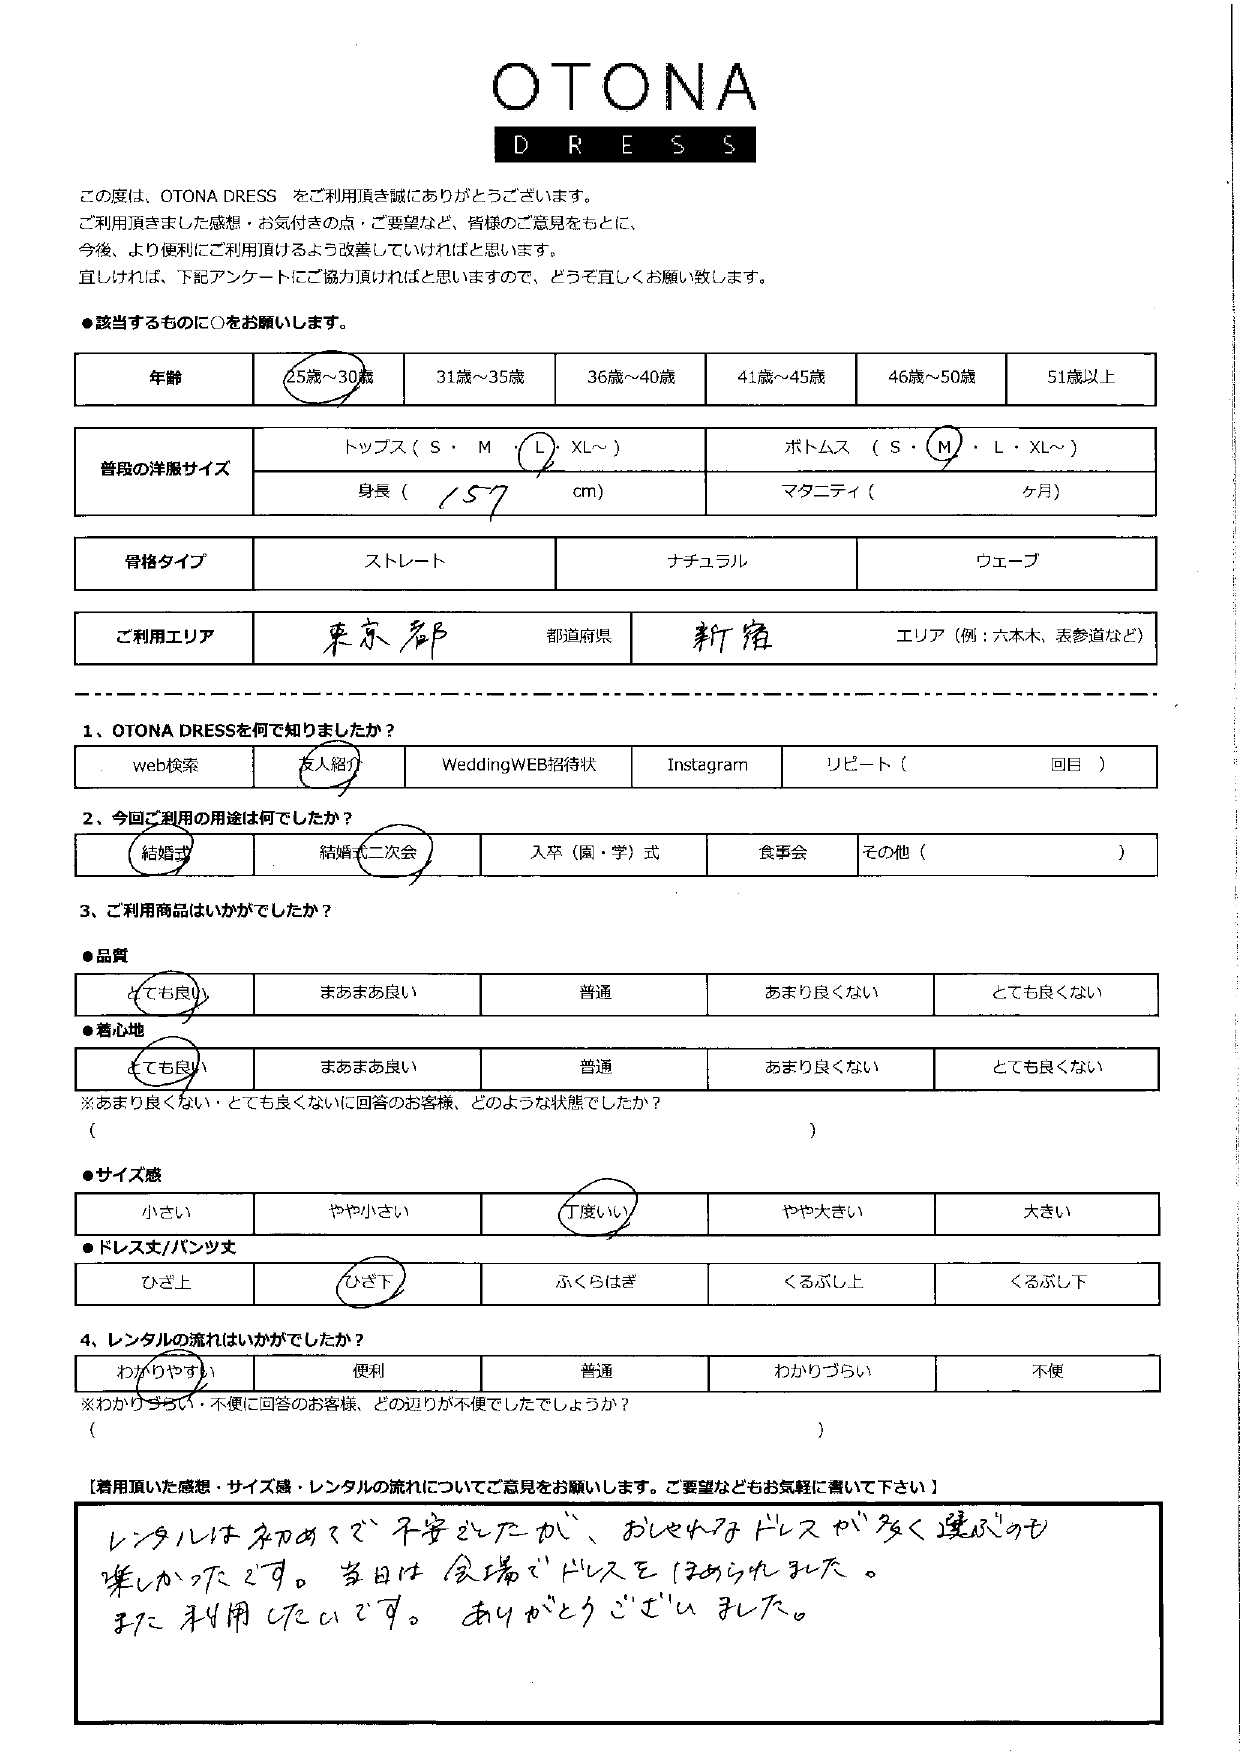 OTONA
DRESS
この度は、OTONA DRESS をご利用頂き誠にありがとうございます。
ご利用頂きました感想・お気付きの点・ご要望など、皆様のご意見をもとに、
今後、より便利にご利用頂けるよう改善していければと思います。
宜しければ、下記アンケートにご協力頂ければと思いますので、どうぞ宜しくお願い致します。
●該当するものに○をお願いします。
年齢 25歳～30歳 31歳～35歳 36歳～40歳 41歳～45歳 46歳～50歳 51歳以上
普段の洋服サイズ トップス ( S ・ M ・ L ・ XL～ ) ボトムス ( S ・ M ・ L ・ XL～ )
身長 ( 157 cm) マタニティ ( ヶ月)
骨格タイプ ストレート ナチュラル ウェーブ
ご利用エリア 東京都 都道府県 新宿 エリア（例：六本木、表参道など）
1、OTONA DRESSを何で知りましたか？
web検索 友人紹介 WeddingWEB招待状 Instagram リピート（ 回目 ）
2、今回ご利用の用途は何でしたか？
結婚式 結婚式二次会 入卒（園・学）式 食事会 その他（ ）
3、ご利用商品はいかがでしたか？
●品質
とても良い まあまあ良い 普通 あまり良くない とても良くない
●着心地
とても良い まあまあ良い 普通 あまり良くない とても良くない
※あまり良くない・とても良くないに回答のお客様、どのような状態でしたか？
( )
●サイズ感
小さい やや小さい 丁度いい やや大きい 大きい
●ドレス丈/パンツ丈
ひざ上 ひざ下 ふくらはぎ くるぶし上 くるぶし下
4、レンタルの流れはいかがでしたか？
わかりやすい 便利 普通 わかりづらい 不便
※わかりづらい・不便に回答のお客様、どの辺りが不便でしたでしょうか？
( )
【着用頂いた感想・サイズ感・レンタルの流れについてご意見をお願いします。ご要望などもお気軽に書いて下さい】
レンタルは初めてで不安でしたが、おしゃれなドレスが多く選ぶのも
楽しかったです。当日は会場でドレスをほめられました。
また利用したいです。ありがとうございました。